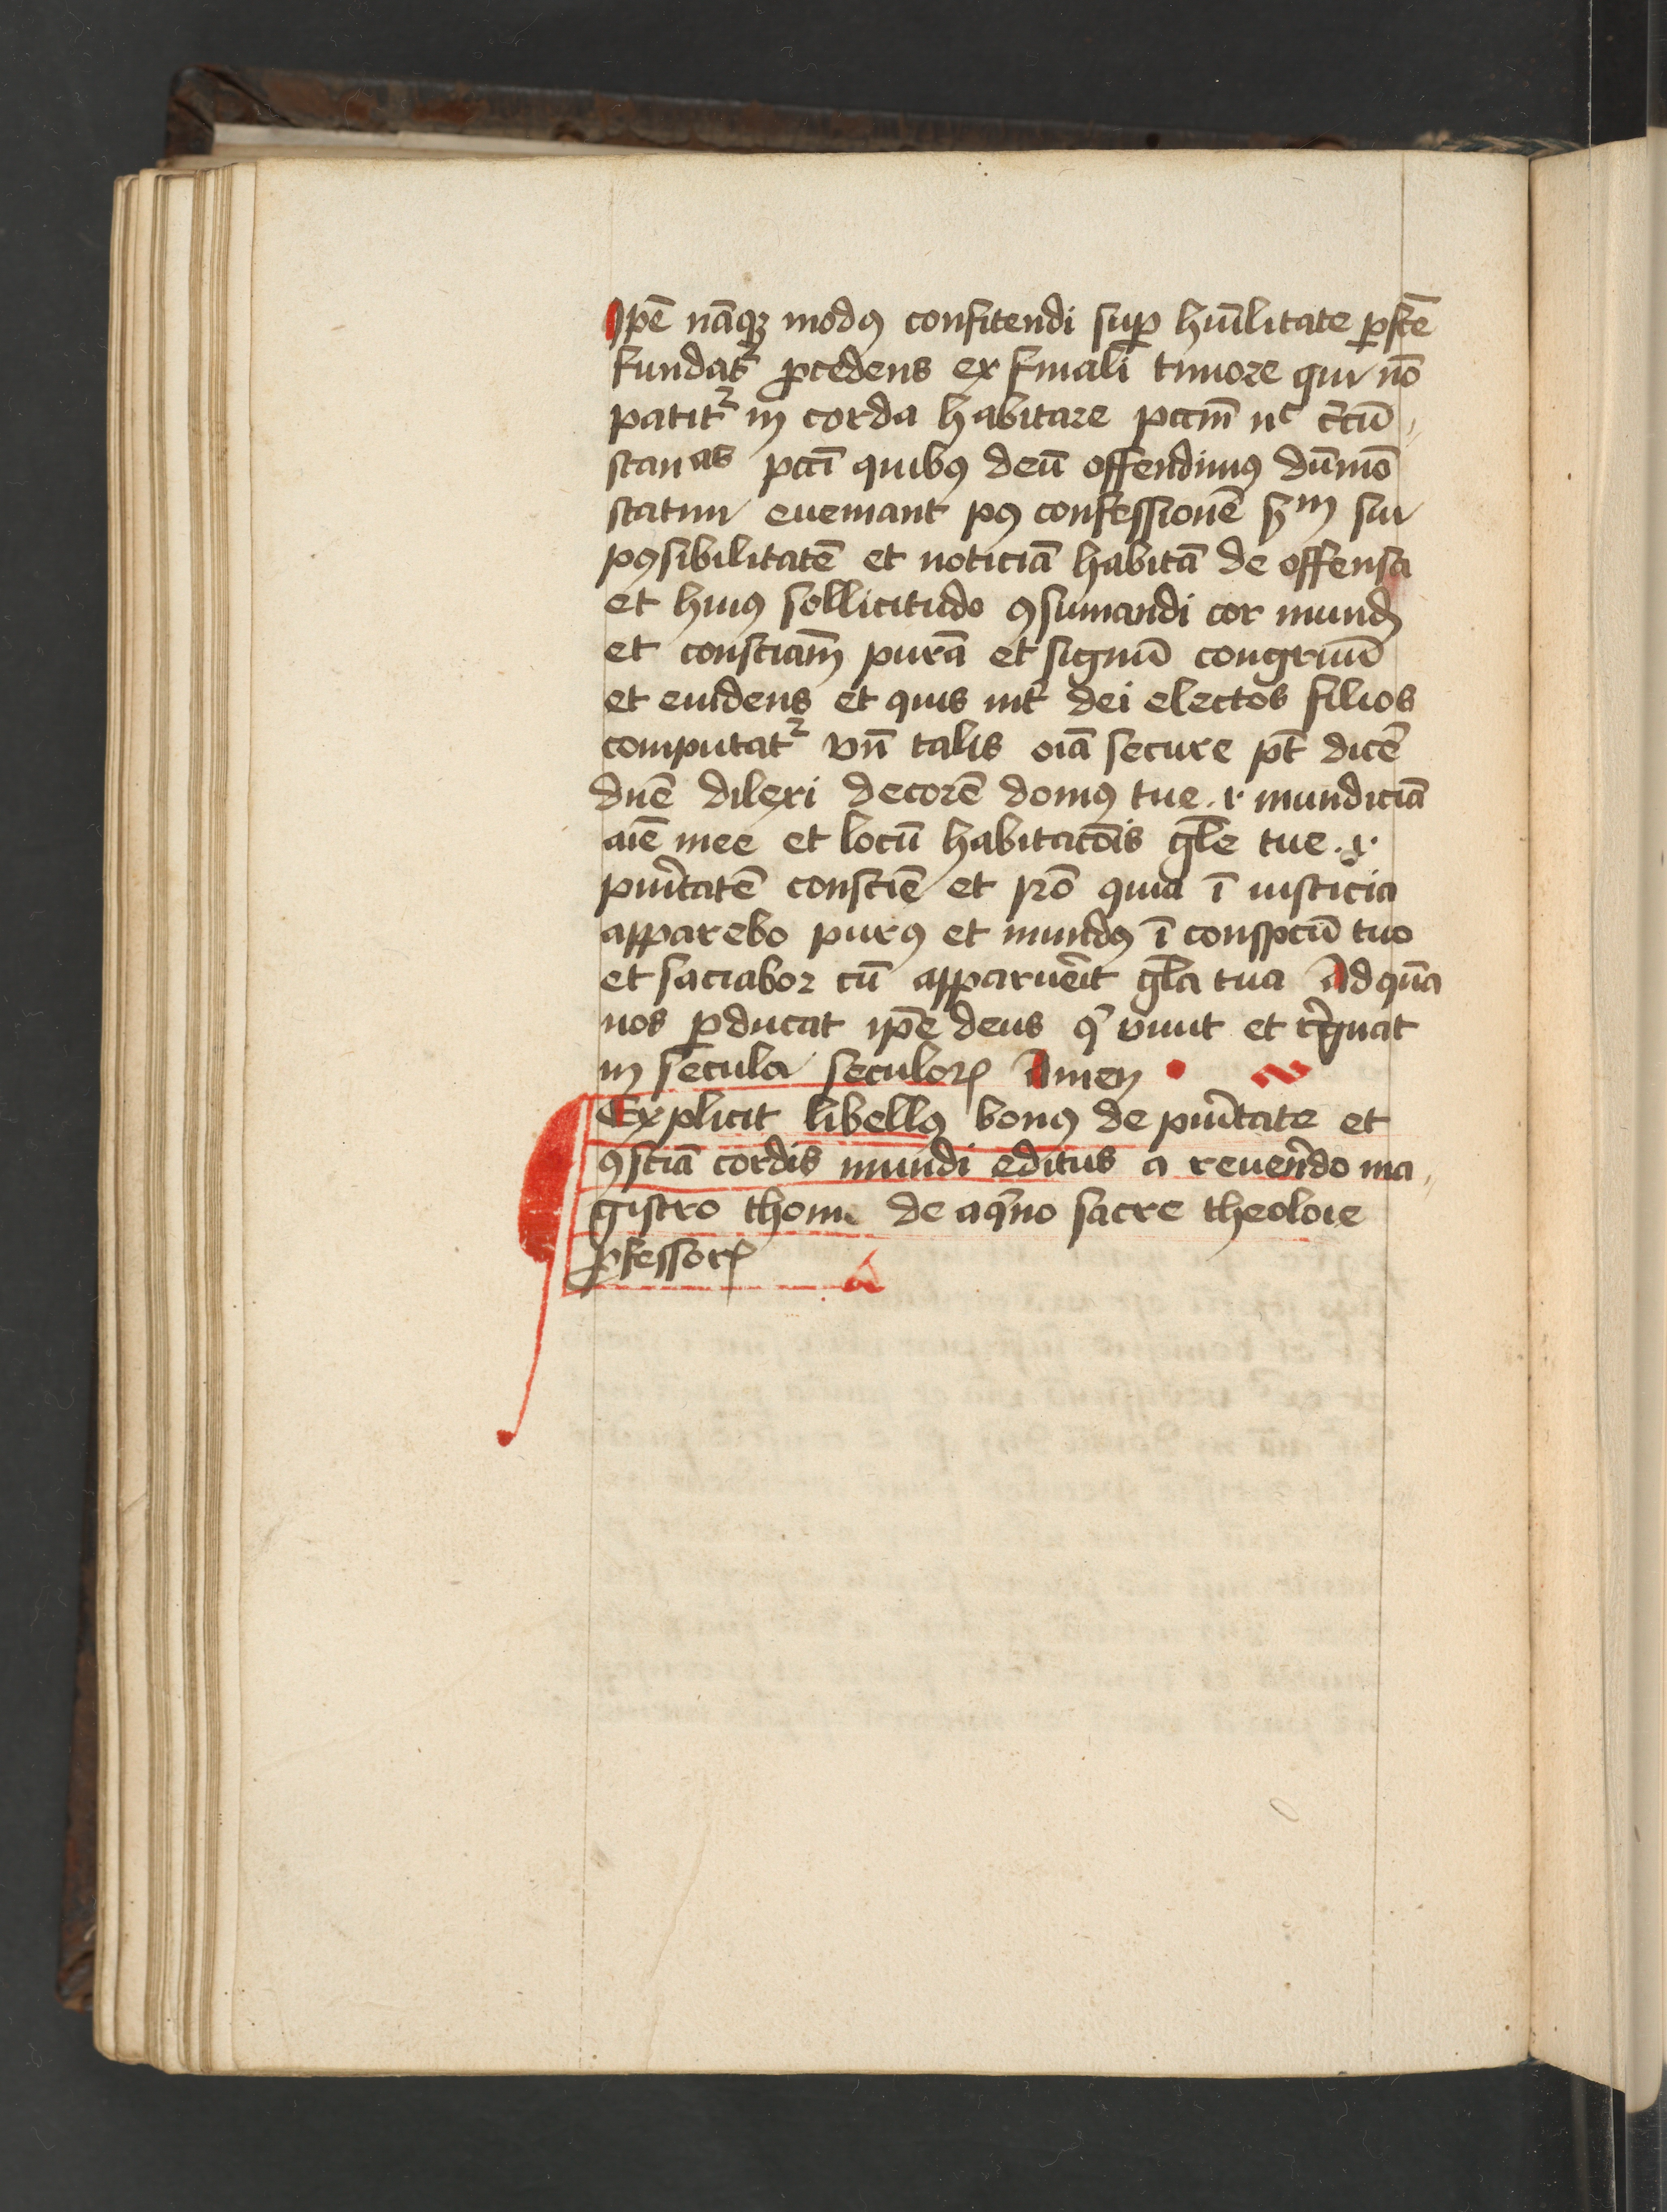 Ipē nāq₃ modꝰ confitendi suꝑ hūilitate ꝑfcē
fundatᷣ ꝓcedens ex finali timore qui nō
patitᷣ in corda habitare pccm̄ nᶜ c̄cū
stanᵃˢ pccī quibꝰ deū offendimꝰ dūmō
statim eueniant pꝰ confessionē ẜm sui
pꝰsibilitatē et noticiā habitā de offensa
et huiꝰ sollicitudo ꝯsumandi cor mund
et consciam̄ purā et signū congruū
et euidens et quis int̄ dei electos filios
computatᷣ vn̄ talis oīa secure pt̄ dicē
dnē dilexi decorē domꝰ tue .i. mundiciā
aīe mee et locū habitacōis gl̄e tue .i.
puritatē consciē et ꝓ quia ī iusticia
apparebo purꝰ et mundꝰ ī conspcū tuo
et saciabor cū apparueīt gl̄a tua Ad quā
nos ꝑducat ip̄e deus qͥ viuit et r̄gnat
in secula seculoꝝ Amen
Explicit libellꝰ bonꝰ de puritate et
ꝯsciā cordis mundi editus a reuerēdo ma
gistro thome de aqͥno sacre theoloie
ꝓfessorꝭ